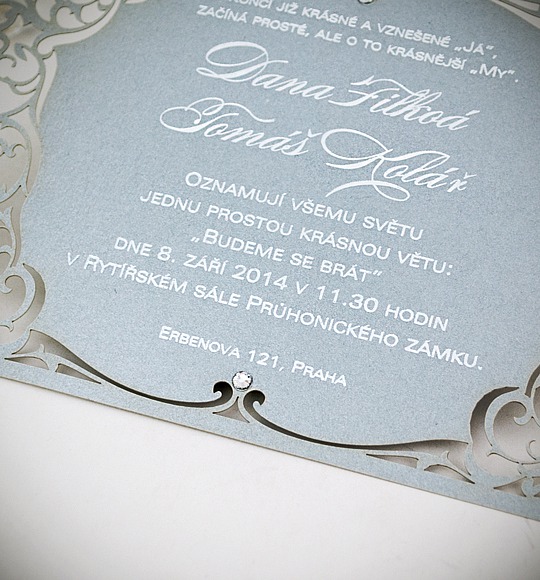 KONČÍ JIŽ KRÁSNÉ A VZNEŠENÉ „JÁ“,
ZAČÍNÁ PROSTÉ, ALE O TO KRÁSNĚJŠÍ „MY“.
Dana Filková
Tomáš Kolář
OZNAMUJÍ VŠEMU SVĚTU
JEDNU PROSTOU KRÁSNOU VĚTU:
„BUDEME SE BRÁT“
DNE 8. ZÁŘÍ 2014 V 11.30 HODIN
V RYTÍŘSKÉM SÁLE PRŮHONICKÉHO ZÁMKU.
ERBENOVA 121, PRAHA